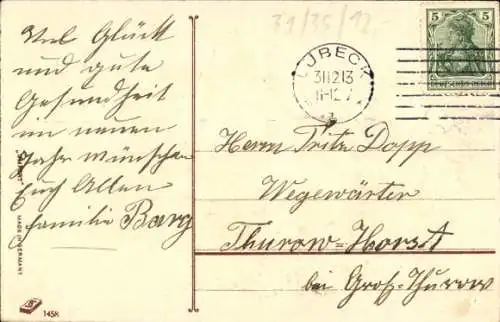 31/35/12,-
Viel Glück
und gute
Gesundheit
im neuen
Jahr wünschen
Euch Allen
Familie Barg
LÜBECK
31.12.13
11-12 V
5 5
DEUTSCHES REICH
Herrn Fritz Dopp
Wegewärter
Thurow-Horst
bei Groß-Thurow
MADE IN GERMANY
1458